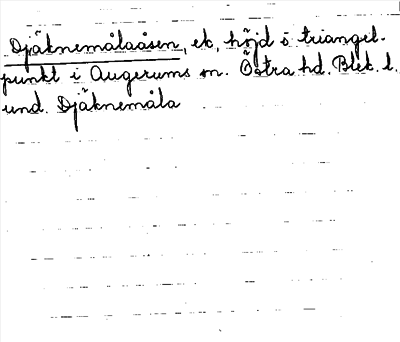 Djäknemålaåsen, ek, höjd o triangel-
punkt i Augerums sn. Östra hd. Blek. l.
und. Djäknemåla